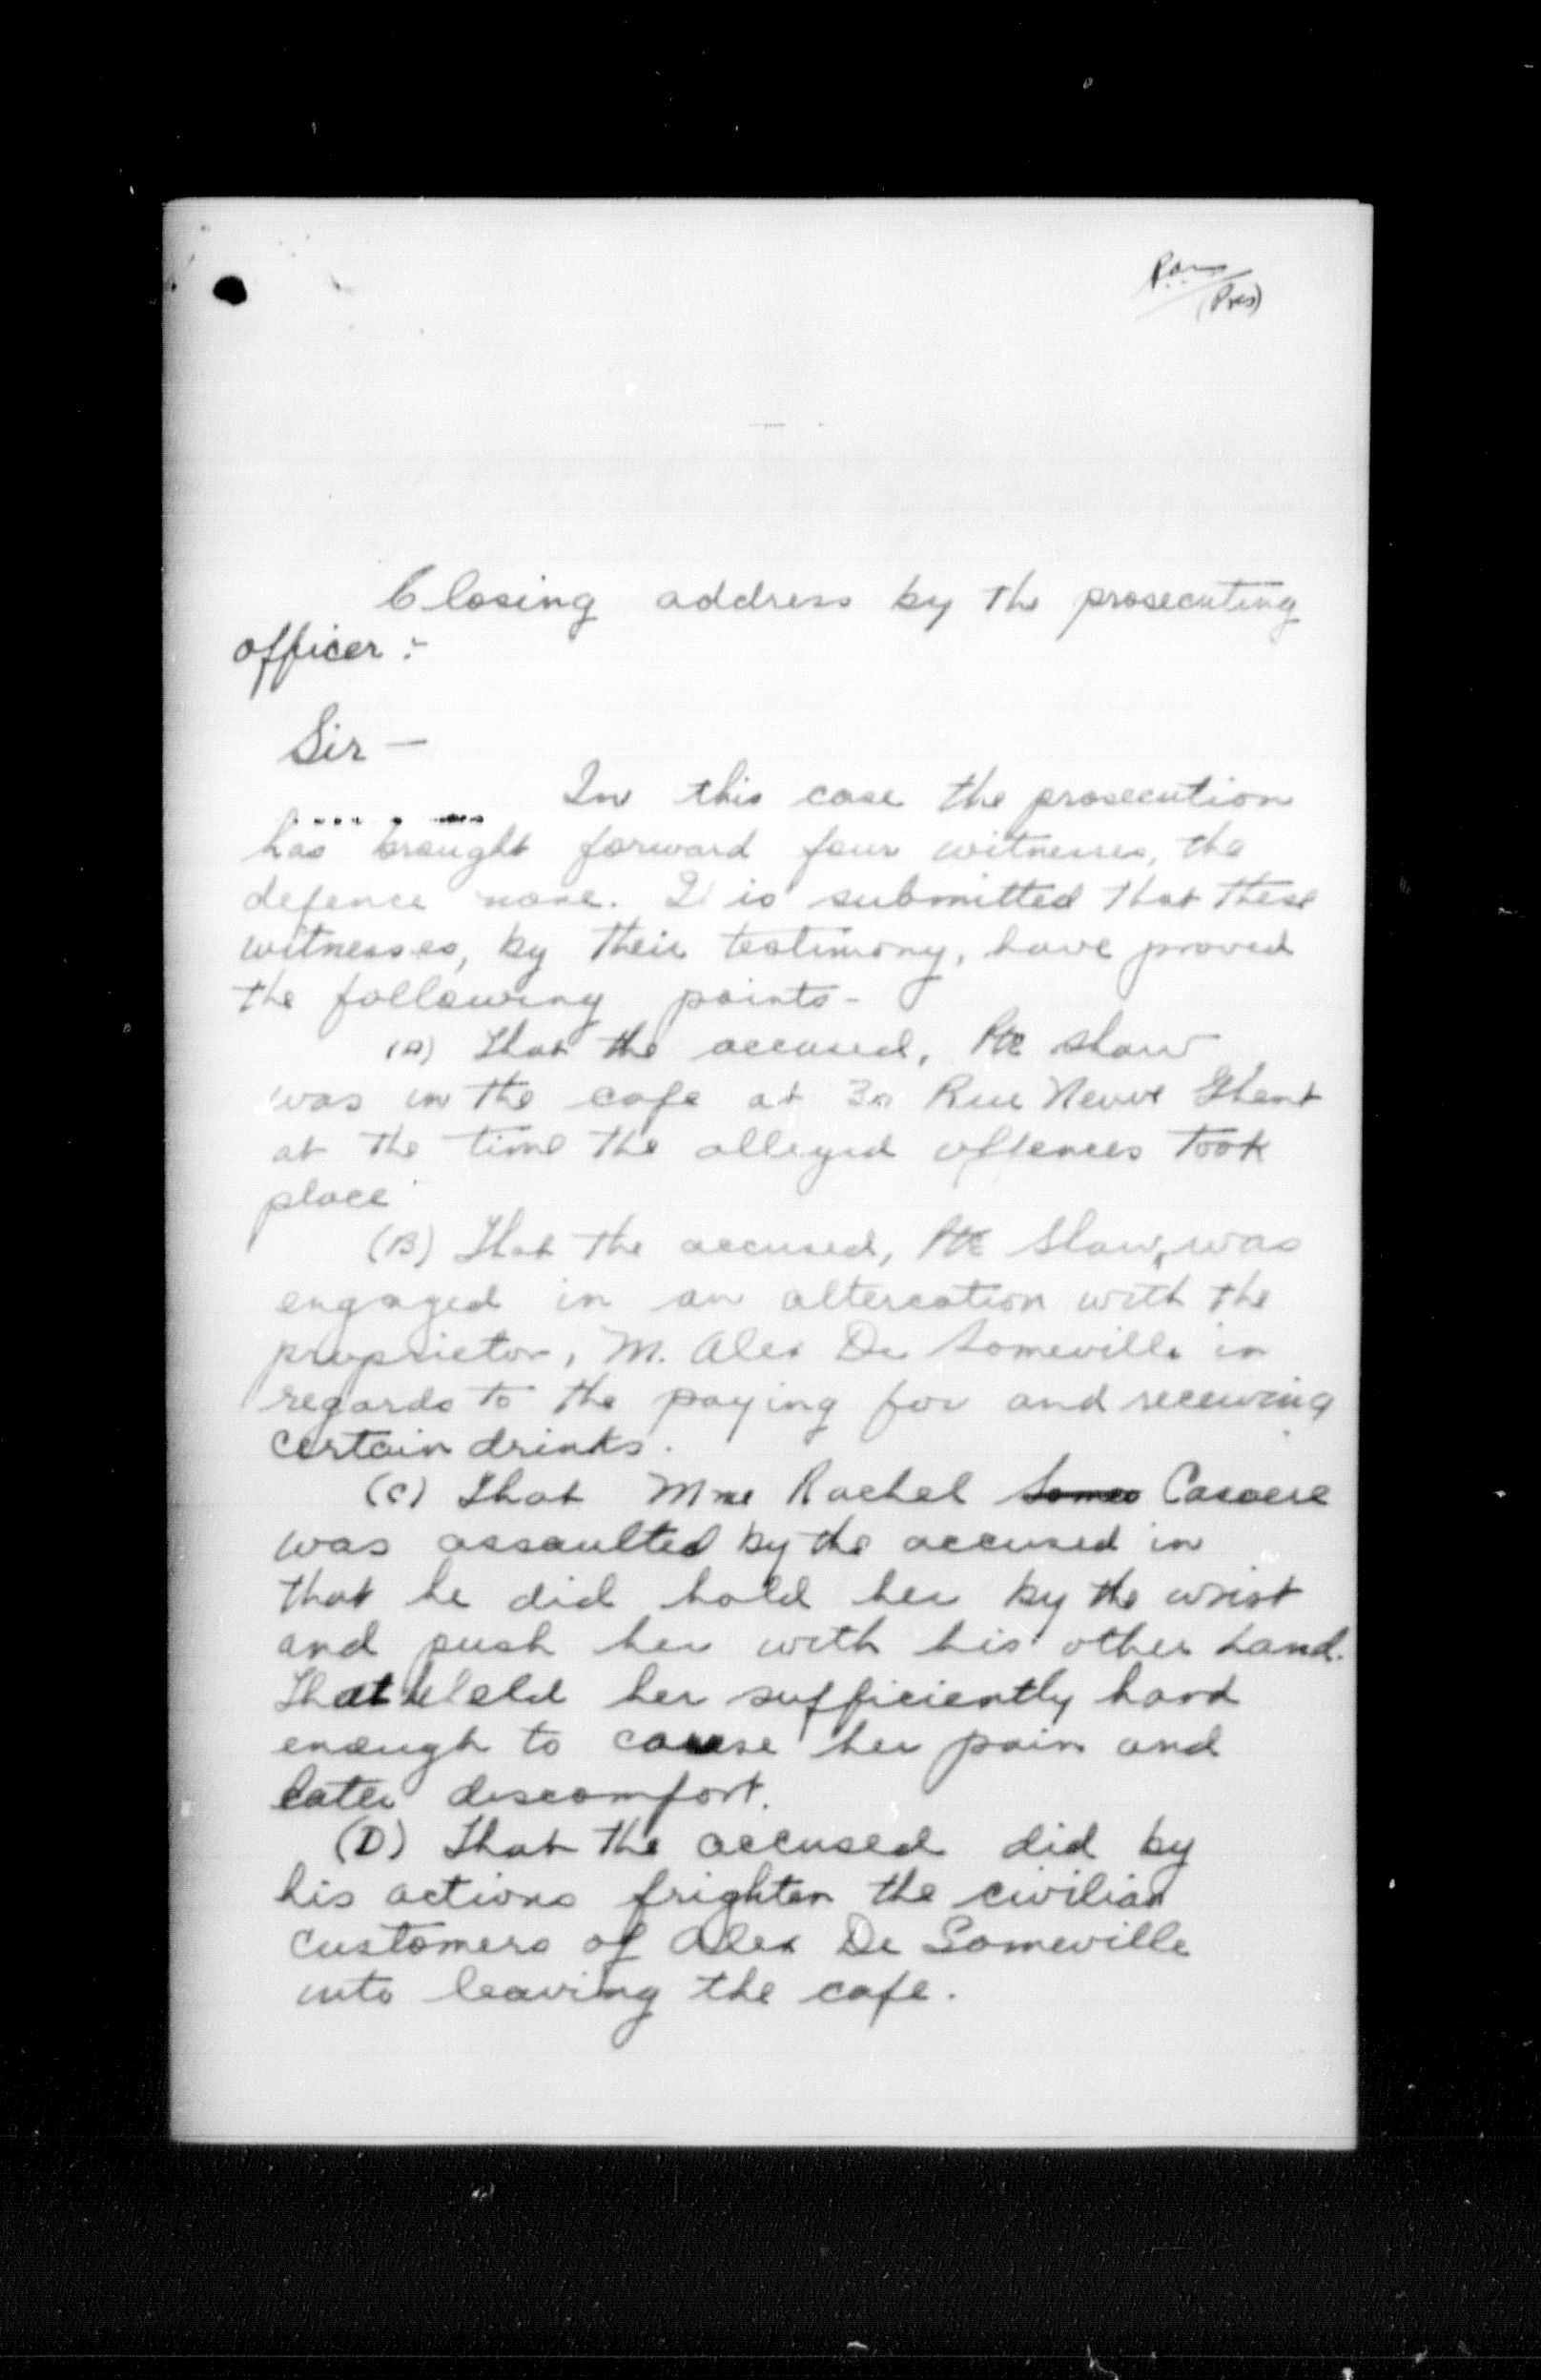 (Pres)
Closing address by the prosecuting
officer :-
Sir —
In this case the prosecution
has brought forward four witnesses, the
defence none. It is submitted that these
witnesses, by their testimony, have proved
the following points -
(A) That the accused, Pte Shaw
was in the cafe at 30 Rue Neuve Ghent
at the time the alleged offences took
place
(B) That the accused, Pte Shaw, was
engaged in an altercation with the
proprietor, M. Alex De Someville in
regards to the paying for and receiving
certain drinks.
(C) That Mme Rachel
was assaulted by the accused in
that he did hold her by the wrist
and push her with his other hand.
That he held her sufficiently hard
enough to cause her pain and
later discomfort.
(D) That the accused did by
his actions frighten the civilian
customers of Alex De Someville
into leaving the cafe.